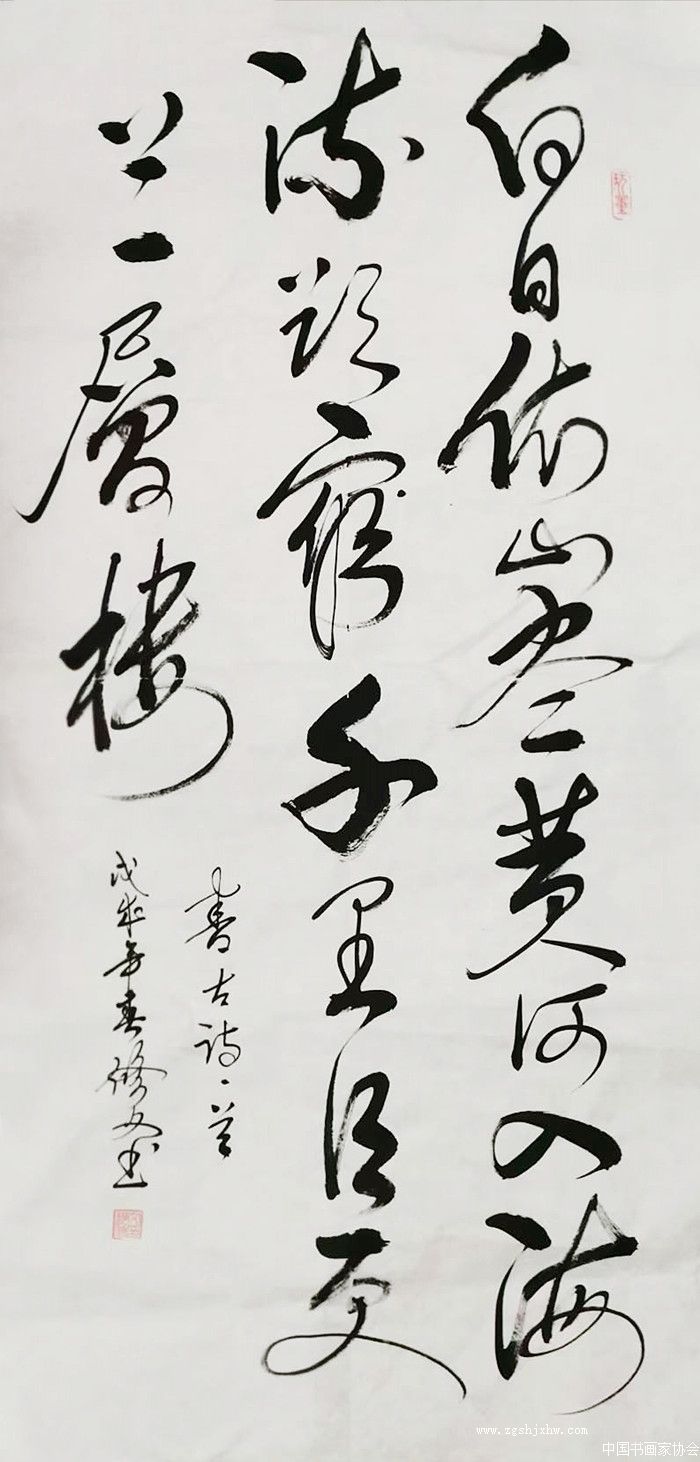 白日依山盡黄河入海
流欲窮千里目更
上一層樓
書古詩一首
戊戌年春修文书
www.zgshjxhw.com
中国书画家协会